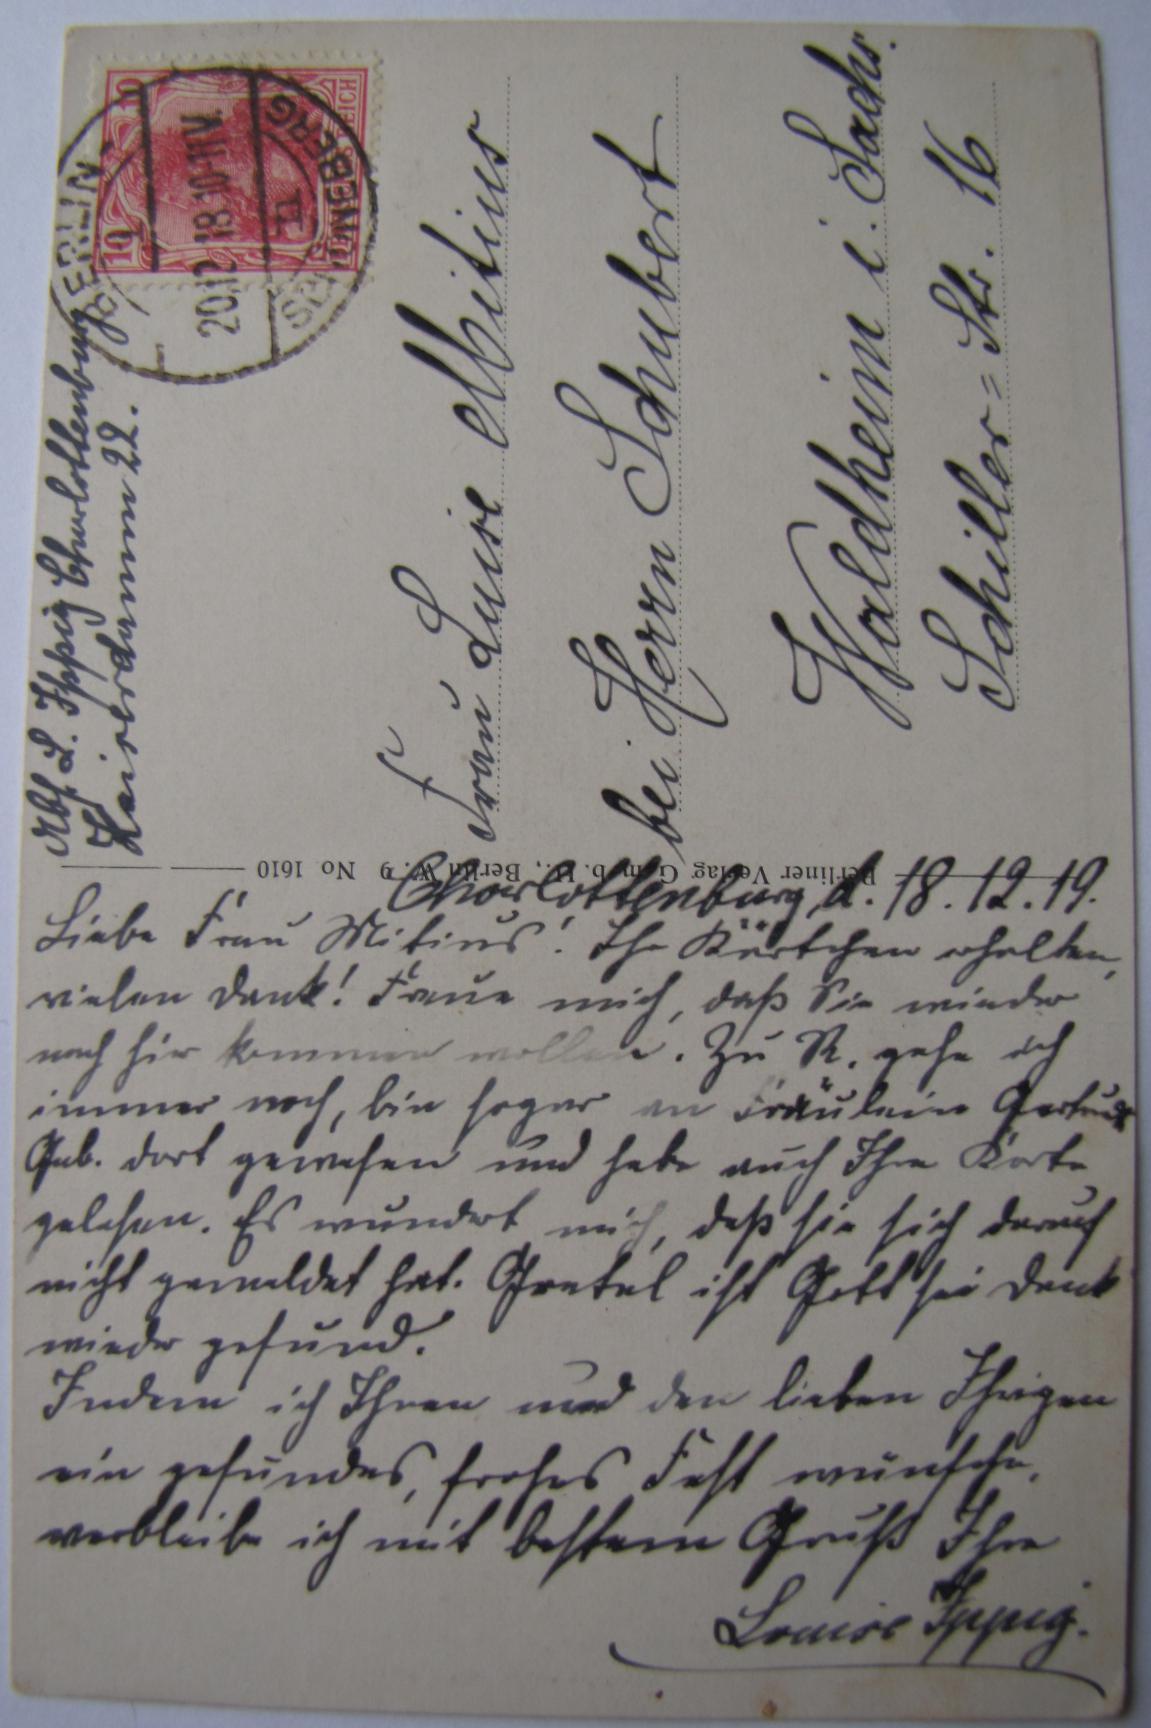 Abs. L. Ippig Charlottenburg
Kaiserdamm 22.
BERLIN
SCHÖNEBERG
20.12.18.10-11V.
10
10
Frau Luise Mitius
bei Herrn Schubert
Waldheim i. Sachs.
Schiller=Str. 16
Berliner Verlag G.m.b.H., Berlin W. 9 No 1610
Charlottenburg, d. 18.12.19.
Liebe Frau Mitius! Ihr Kärtchen erhalten,
vielen Dank! Freue mich, daß Sie wieder
nach hier kommen wollen. Zu R. gehe ich
immer noch, bin sogar an Fräulein Gertruds
Geb. dort gewesen und habe auch Ihre Karte
gelesen. Es wundert mich, daß sie sich darauf
nicht gemeldet hat. Gretel ist Gott sei Dank
wieder gesund.
Indem ich Ihnen und den lieben Ihrigen
ein gesundes, frohes Fest wünsche,
verbleibe ich mit bestem Gruß Ihre
Louise Ippig.